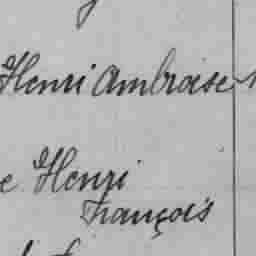 Henri Ambroise
e Henri
François